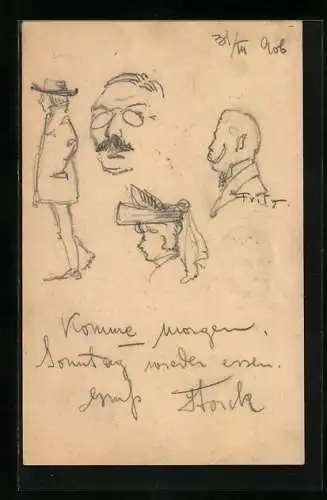 31/III 906
Fritz
Komme morgen,
Sonntag wieder essen.
Gruß Storck